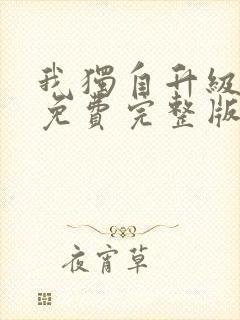 我獨自升級
免費完整版
夜宵草